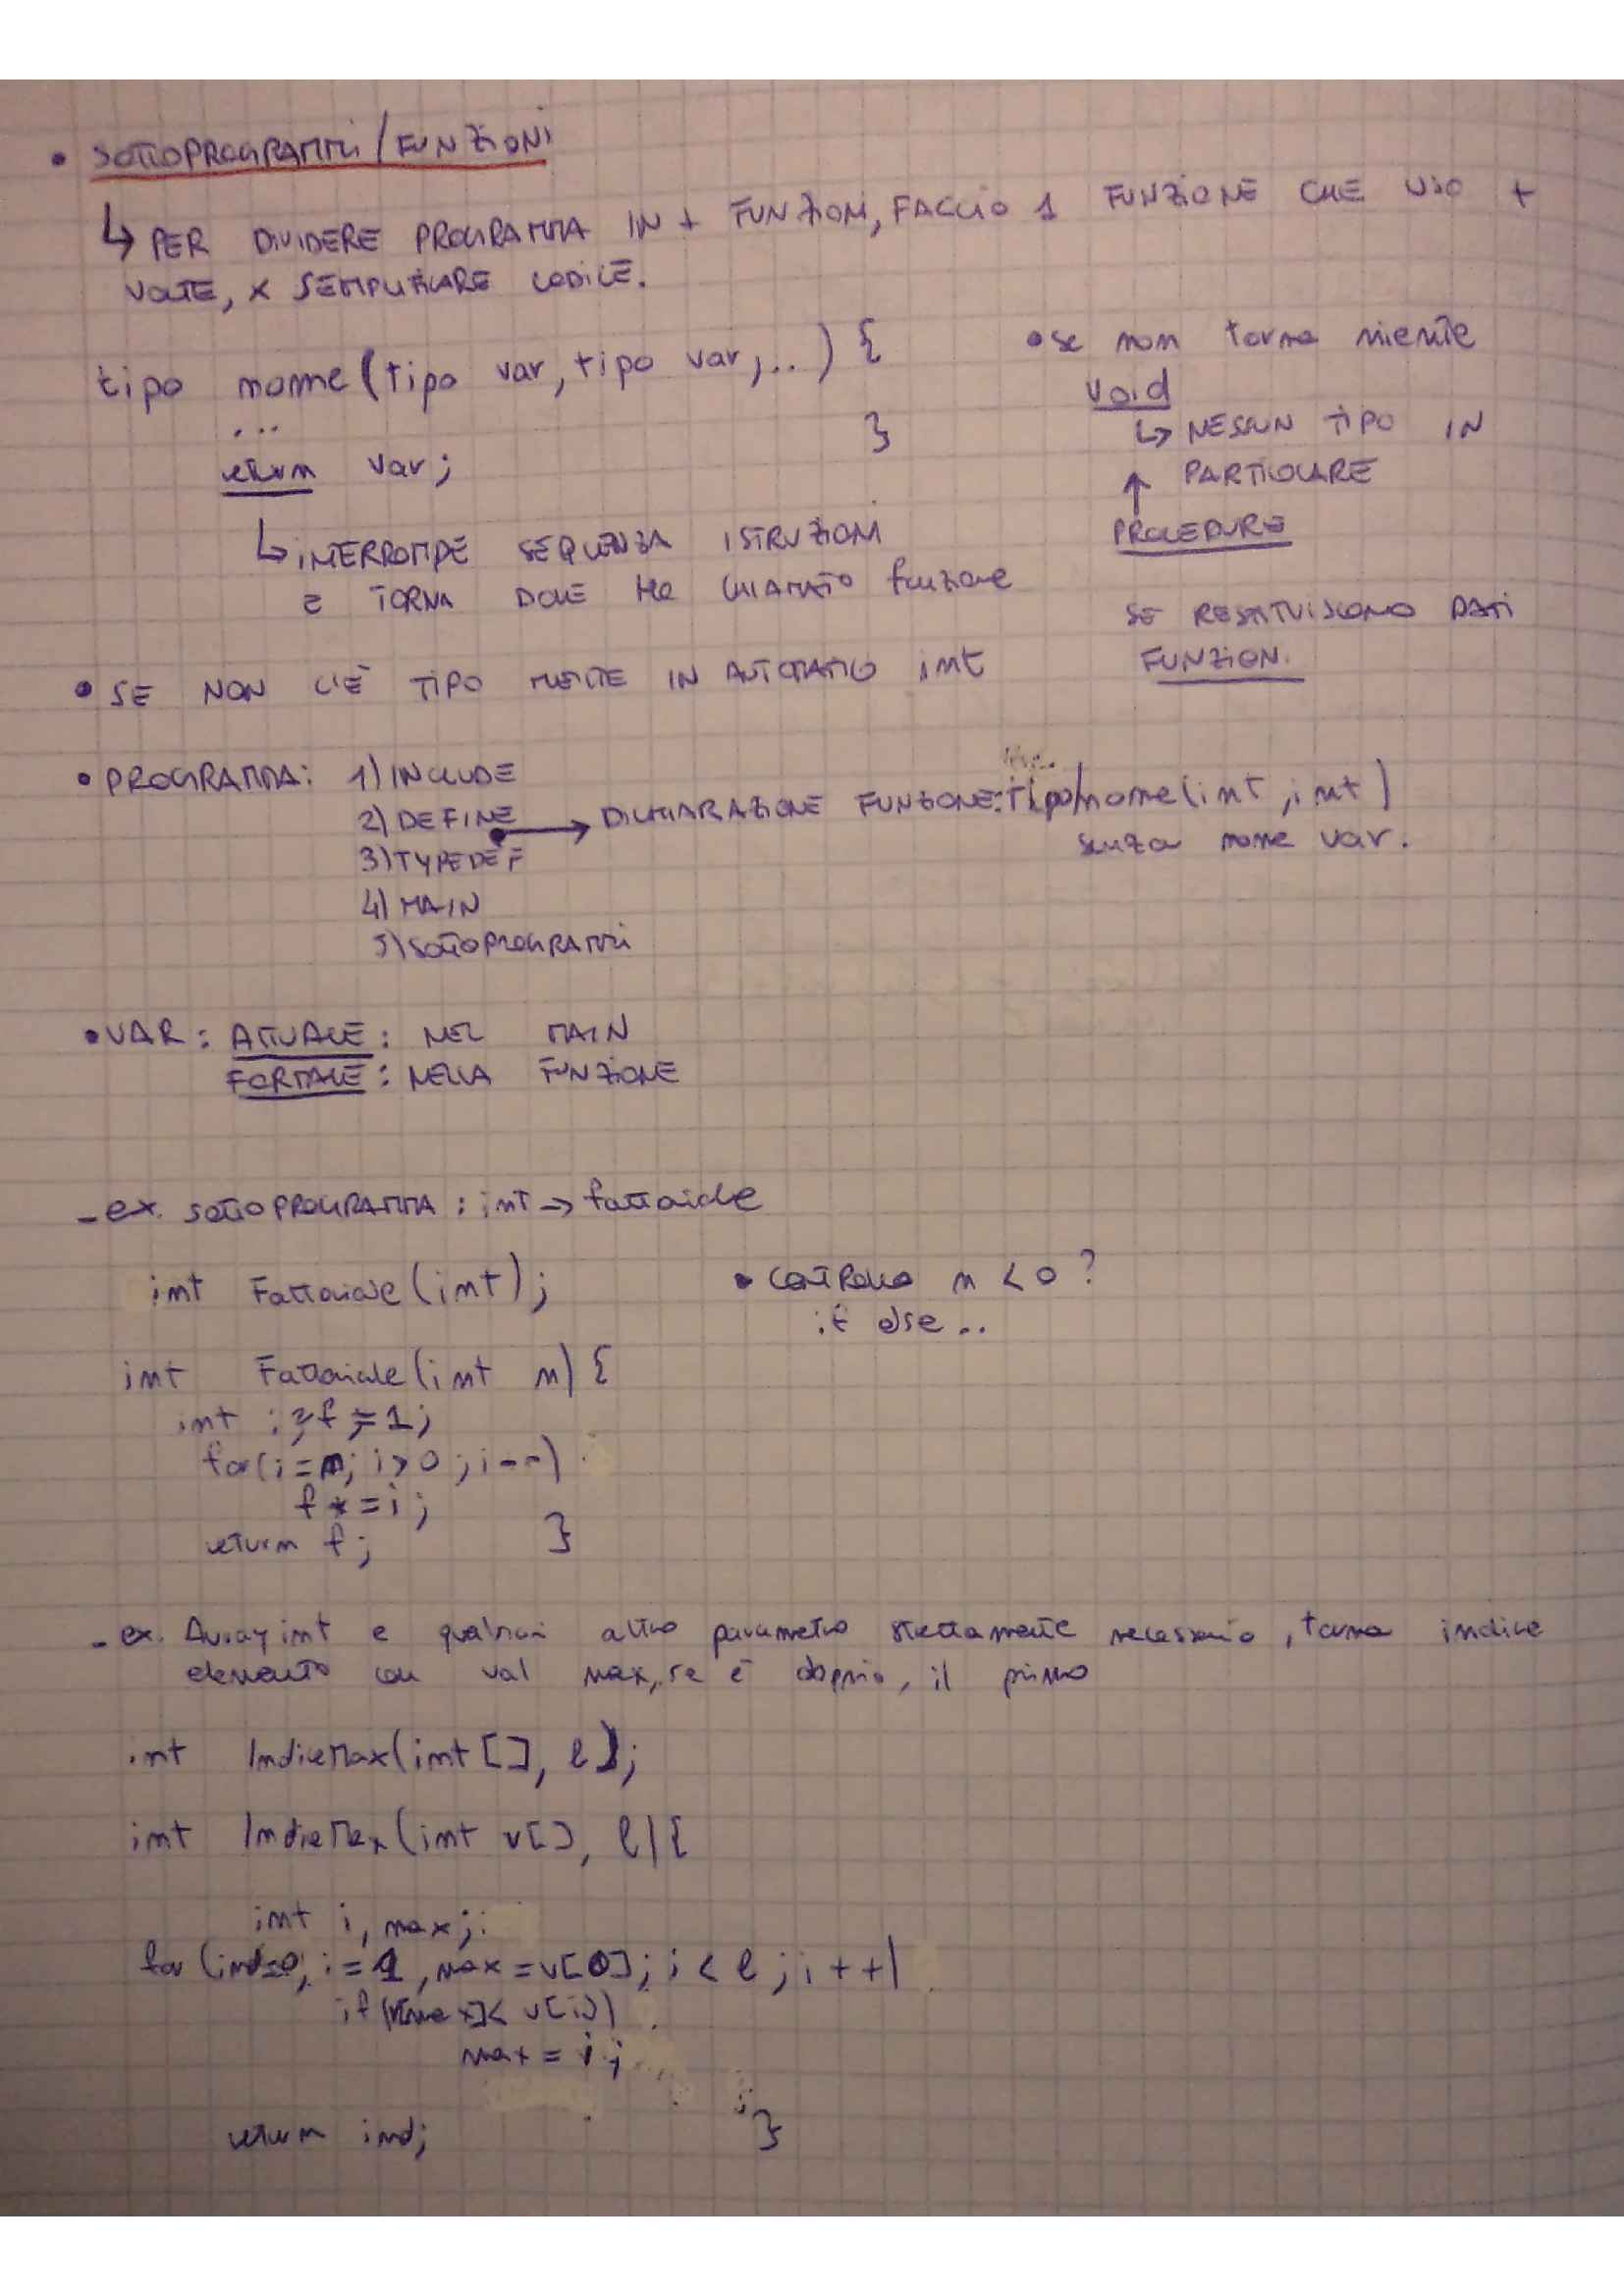 • SOTTOPROGRAMMI/FUNZIONI
↳ PER DIVIDERE PROGRAMMA IN + FUNZIONI, FACCIO 1 FUNZIONE CHE USO +
VOLTE, X SEMPLIFICARE CODICE.
tipo nome (tipo var, tipo var, ..) {
...
return var; }
↳ INTERROMPE SEQUENZA ISTRUZIONI
E TORNA DOVE HO CHIAMATO funzione
• se non torna niente
void
↳ NESSUN TIPO IN
PARTICOLARE
↑
PROCEDURE
SE RESTITUISCONO DATI
FUNZIONI
• SE NON C'È TIPO METTE IN AUTOMATICO int
• PROGRAMMA: 1) INCLUDE
2) DEFINE
→ DICHIARAZIONE FUNZIONE: Tipo/nome (int, int)
senza nome var.
3) TYPEDEF
4) MAIN
5) SOTTOPROGRAMMI
• VAR: ATTUALE: NEL MAIN
FORMALE: NELLA FUNZIONE
- ex. SOTTOPROGRAMMA: int → fattoriale
int Fattoriale (int);
• CONTROLLO n < 0?
if else ..
int Fattoriale (int n) {
int i, f = 1;
for (i = n; i > 0; i--)
f *= i;
return f; }
- ex. Array int e qualsiasi altro parametro strettamente necessario, torna indice
elemento con val max, se è doppio, il primo
int IndiceMax (int [], l);
int IndiceMax (int v[], l) {
int i, max;
for (ind=0, i = 1, max = v[0]; i < l; i++)
if (v[max] < v[i])
max = i;
return ind; }